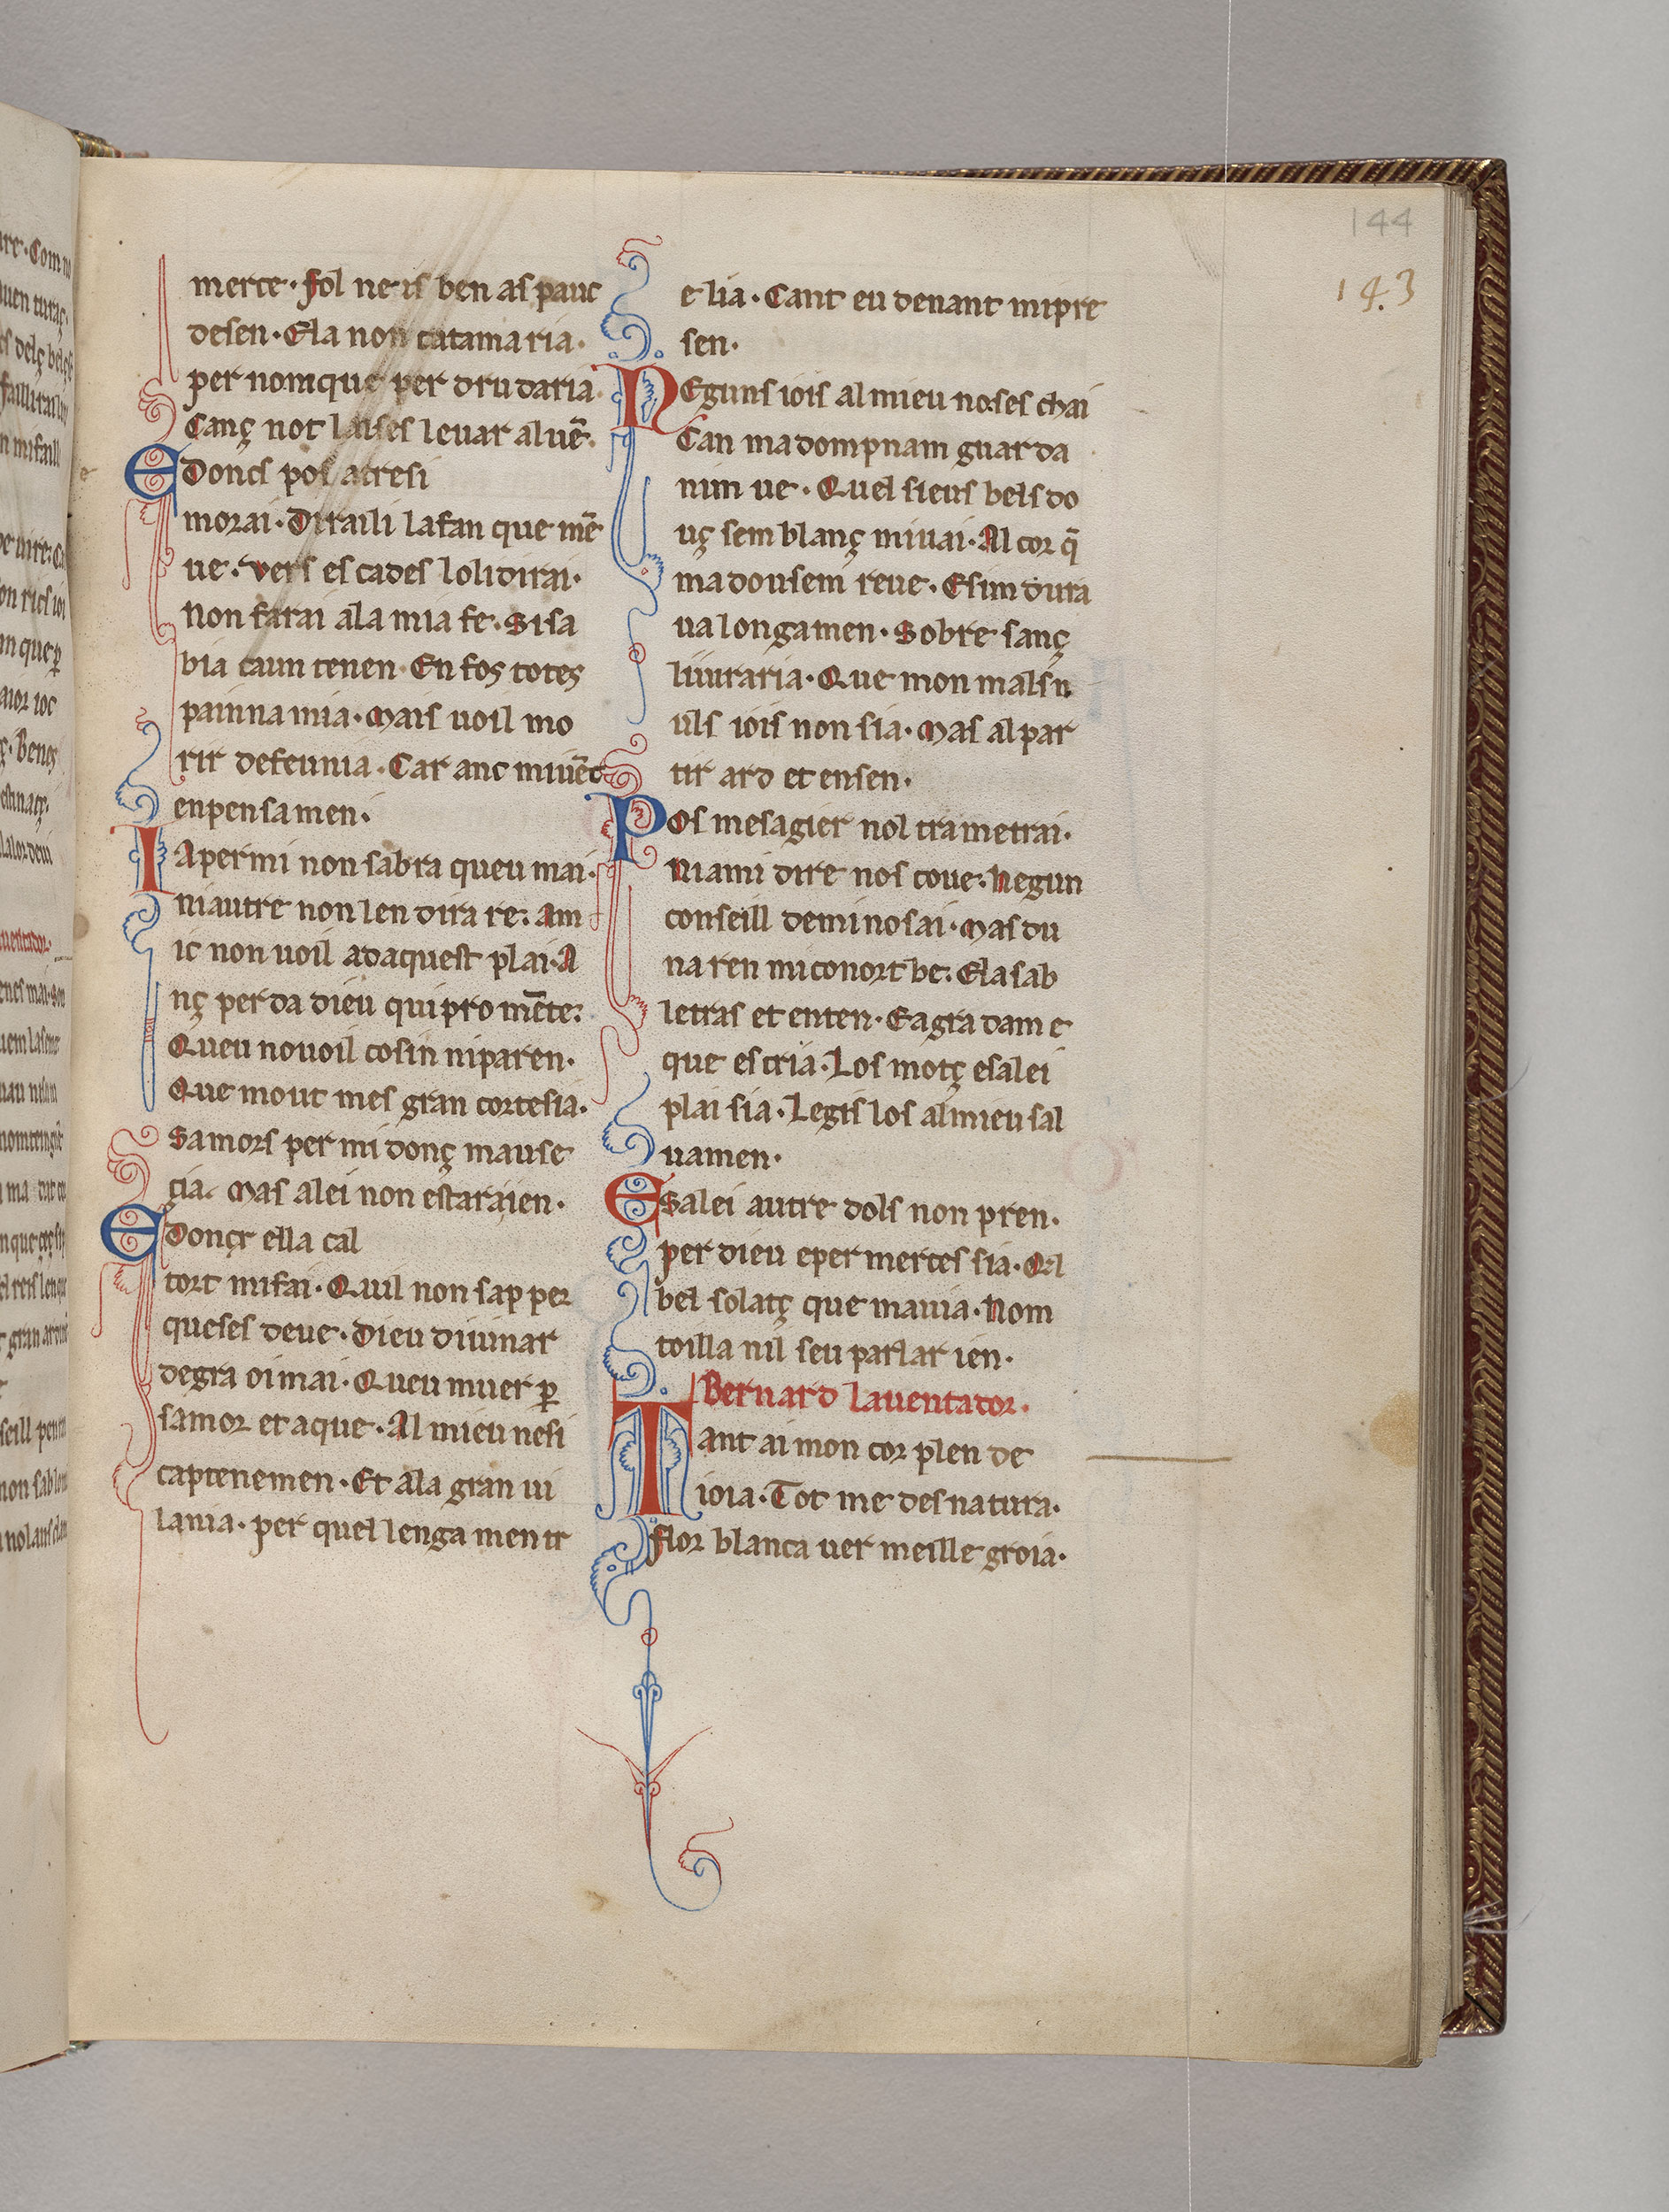 144
143
merce· fol ne is ben as pauc
desen· Ela non catamaria·
per nomque per drudaria·
Canç not laises leuar aluē·
Edoncs pos atresi
morai· Diraili lafan que mē
ue· vers es cades lolidirai·
Non farai ala mia fe· Sisa
bia caun tenen· En fos totes
painna mia· Mais uoil mo
rir defeunia· Car anc miuēc
enpensamen·
Iapermi non sabra queu mai·
niautre non len dira re: am
ic non uoil adaquest plai· A
nç perda dieu qui pro mēte:
Queu nouoil cosin niparen·
Que mout mes gran cortesia·
Samors per mi donç mause
cia· Mas alei non estaraien·
Edonçr ella cal
tort mifai· Quil non sap per
queses deue· Dieu diuinar
degra oimai· Queu muer ꝑ
samor et aque· Al mieu nesi
captenemen· Et ala gran ui
lania· per quel lenga men tr
e lia· Cant eu denant mipre
sen·
Neguns iois al mieu noses chai
Can ma dompnam guarda
nim ue· Quel sieus bels do
uç semblanç miuai· Al cor q̄
madousem reue· Esim dura
ua longamen· Sobre sanç
liuraria· Que mon mals n
uls iois non sia· Mas al par
tir ard et ensen·
Pos mesagier nol trametrai·
Niami dire nos coue: Negun
conseill demi nosai· Mas du
na ren miconort be: Ela sab
letras et enten· E agradam e
que escria· Los motç esalei
plai sia· Legis los almieu sal
uamen·
Esalei autre dols non pren·
per dieu eper merces sia· Qel
bel solatç que mauia· Nom
toilla nil seu parlar ien·
Bernard lauentador·
Tant ai mon cor plen de
ioia· Tot me desnatura·
flor blanca uer meille groia·